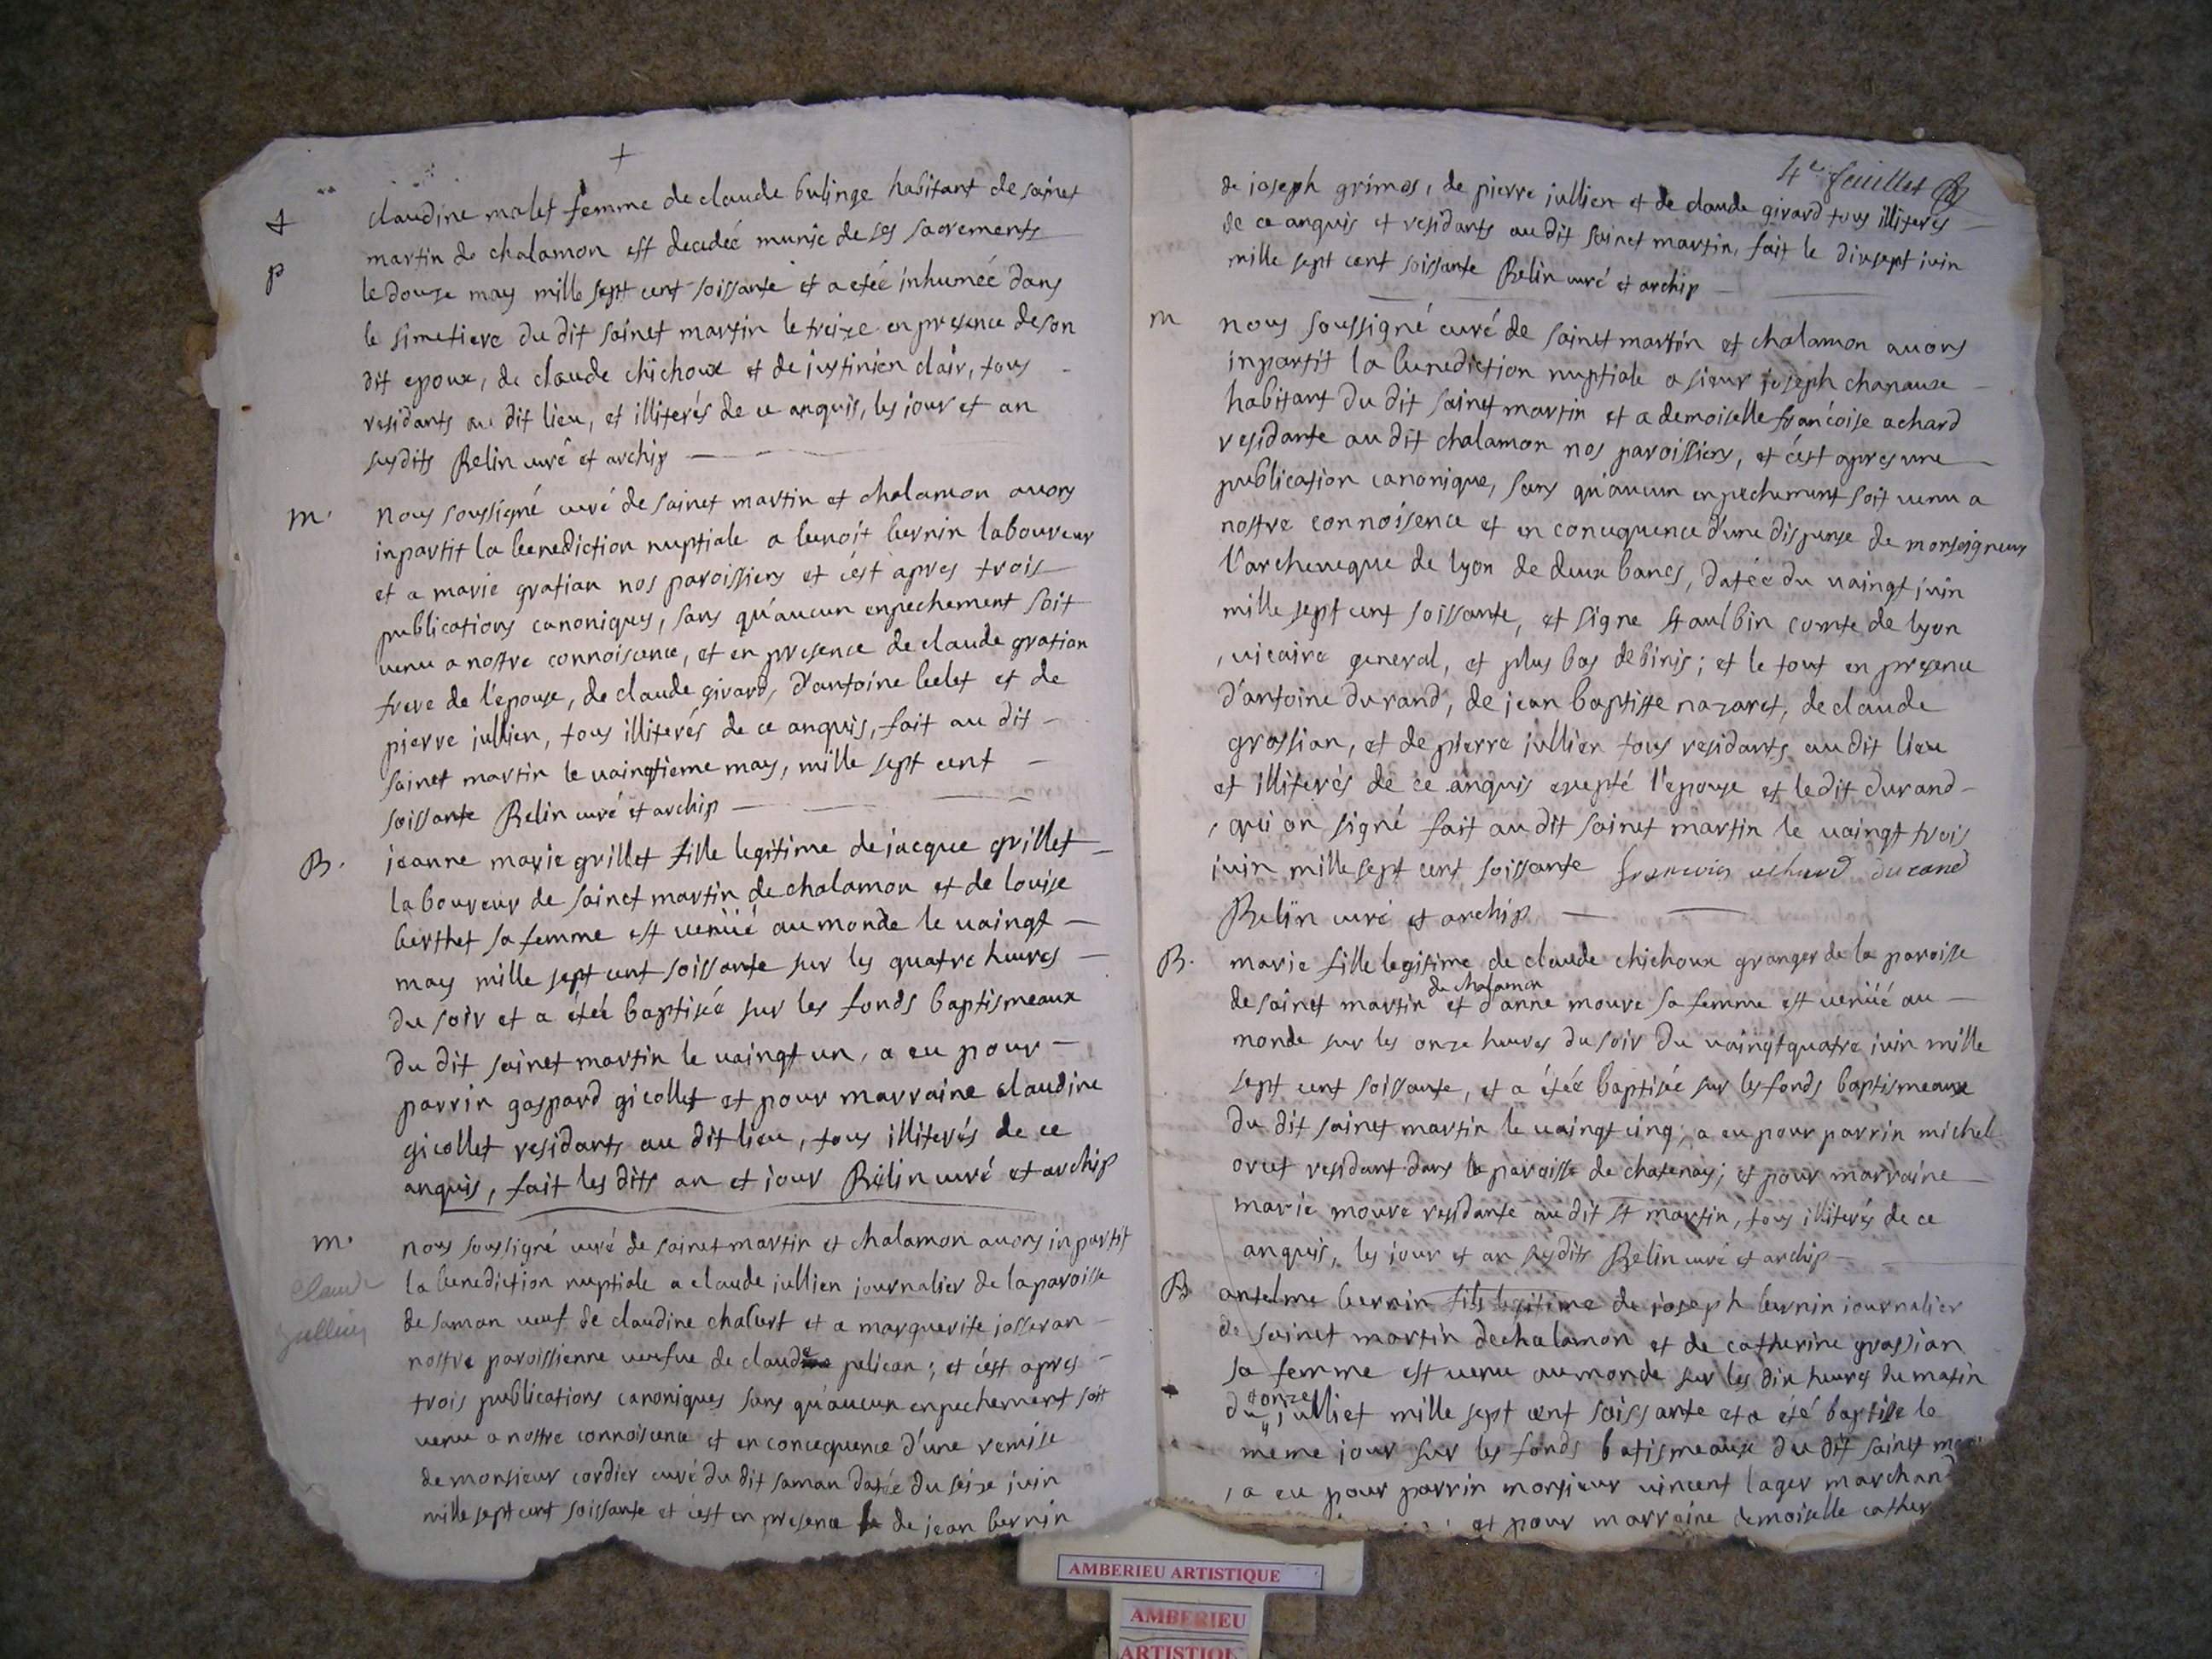 +
+
p
claudine malet femme de claude bulinge habitant de sainct
martin de chalamon est decedéé munie de ses sacrements
le douze may mille sept cent soissante et a etéé inhuméé dans
le simetiere du dit sainct martin le treize en presence de son
dit epoux, de claude chichoux et de justinien clair, tous
residants au dit lieu, et illiterés de ce anquis, les jour et an
susdits Relin curé et archip
m.
nous soussigné curé de sainct martin et chalamon avons
inpartit la benediction nuptiale a benoit bernin laboureur
et a marie gratian nos paroissiens et c'ést apres trois
publications canoniques, sans qu'aucun enpechement soit
venu a nostre connoisence, et en presence de claude gratian
frere de l'epouse, de claude girard, d'antoine belet et de
pierre jullien, tous illiterés de ce anquis, fait au dit
sainct martin le vaingtieme may, mille sept cent
soissante Relin curé et archip
B.
jeanne marie grillet fille legitime de jacque grillet
laboureur de sainct martin de chalamon et de louise
berthet sa femme est venüé au monde le vaingt
may mille sept cent soissante sur les quatre heures
du soir et a étéé baptiséé sur les fonds baptismeaux
du dit sainct martin le vaingt un, a eu pour
parrin gaspard gicollet et pour marraine claudine
gicollet residants au dit lieu, tous illiterés de ce
anquis, fait les dits an et jour Relin curé et archip
m.
Claude
Jullien
nous soussigné curé de sainct martin et chalamon avons inpartit
la benediction nuptiale a claude jullien journalier de la paroisse
de saman veuf de claudine chalurt et a marguerite josseran
nostre paroissienne veufue de claude pelican; et c'ést apres
trois publications canoniques sans qu'aucun enpechement soit
venu a nostre connoisence et en concequence d'une remise
de monsieur cordier curé du dit saman datéé du séize juin
mille sept cent soissante et c'est en presence de jean bernin
4e feuillet
de joseph grimas, de pierre jullien et de claude girard tous illiterés
de ce anquis et residants au dit sainct martin, fait le dixsept juin
mille sept cent soissante Relin curé et archip
m
nous soussigné curé de sainct martin et chalamon avons
inpartit la benediction nuptiale a sieur joseph chanaux
habitant du dit sainct martin et a demoiselle françoise achard
residante au dit chalamon nos paroissiens, et c'ést apres une
publication canonique, sans qu'aucun enpechement soit venu a
nostre connoisence et en concequence d'une dispense de monseigneur
l'archeveque de lyon de deux bancs, datéé du vaingt juin
mille sept cent soissante, et signe st aulbin comte de lyon
, vicaire general, et plus bas debinis; et le tout en presence
d'antoine durand, de jean baptiste nazaret, de claude
grassian, et de pierre jullien tous residants au dit lieu
et illiterés de ce anquis exepté l'epouse et le dit durand
, qui on signé fait au dit sainct martin le vaingt trois
juin mille sept cent soissante achard durand
Relin curé et archip
B.
marie fille legitime de claude chichoux granger de la paroisse
de chalamon
de sainct martin et d'anne moure sa femme est venüé au
monde sur les onze heures du soir du vaingt quatre juin mille
sept cent soissante, et a étéé baptiséé sur les fonds baptismeaux
du dit sainct martin le vaingt cinq, a eu pour parrin michel
orset residant dans la paroisse de chatenay; et pour marraine
marie moure residante au dit st martin, tous illiterés de ce
anquis, les jour et an susdits Relin curé et archip
B
antelme bernin fils legitime de joseph bernin journalier
de sainct martin de chalamon et de catherine grassian
sa femme est venu au monde sur les dix heures du matin
onze
du julliet mille sept cent soissante et a été baptise le
meme jour sur les fonds batismeaux du dit sainct mar
, a eu pour parrin monsieur vincent lager marchand
et pour marraine demoiselle cather
AMBERIEU ARTISTIQUE
AMBERIEU
ARTISTIQU